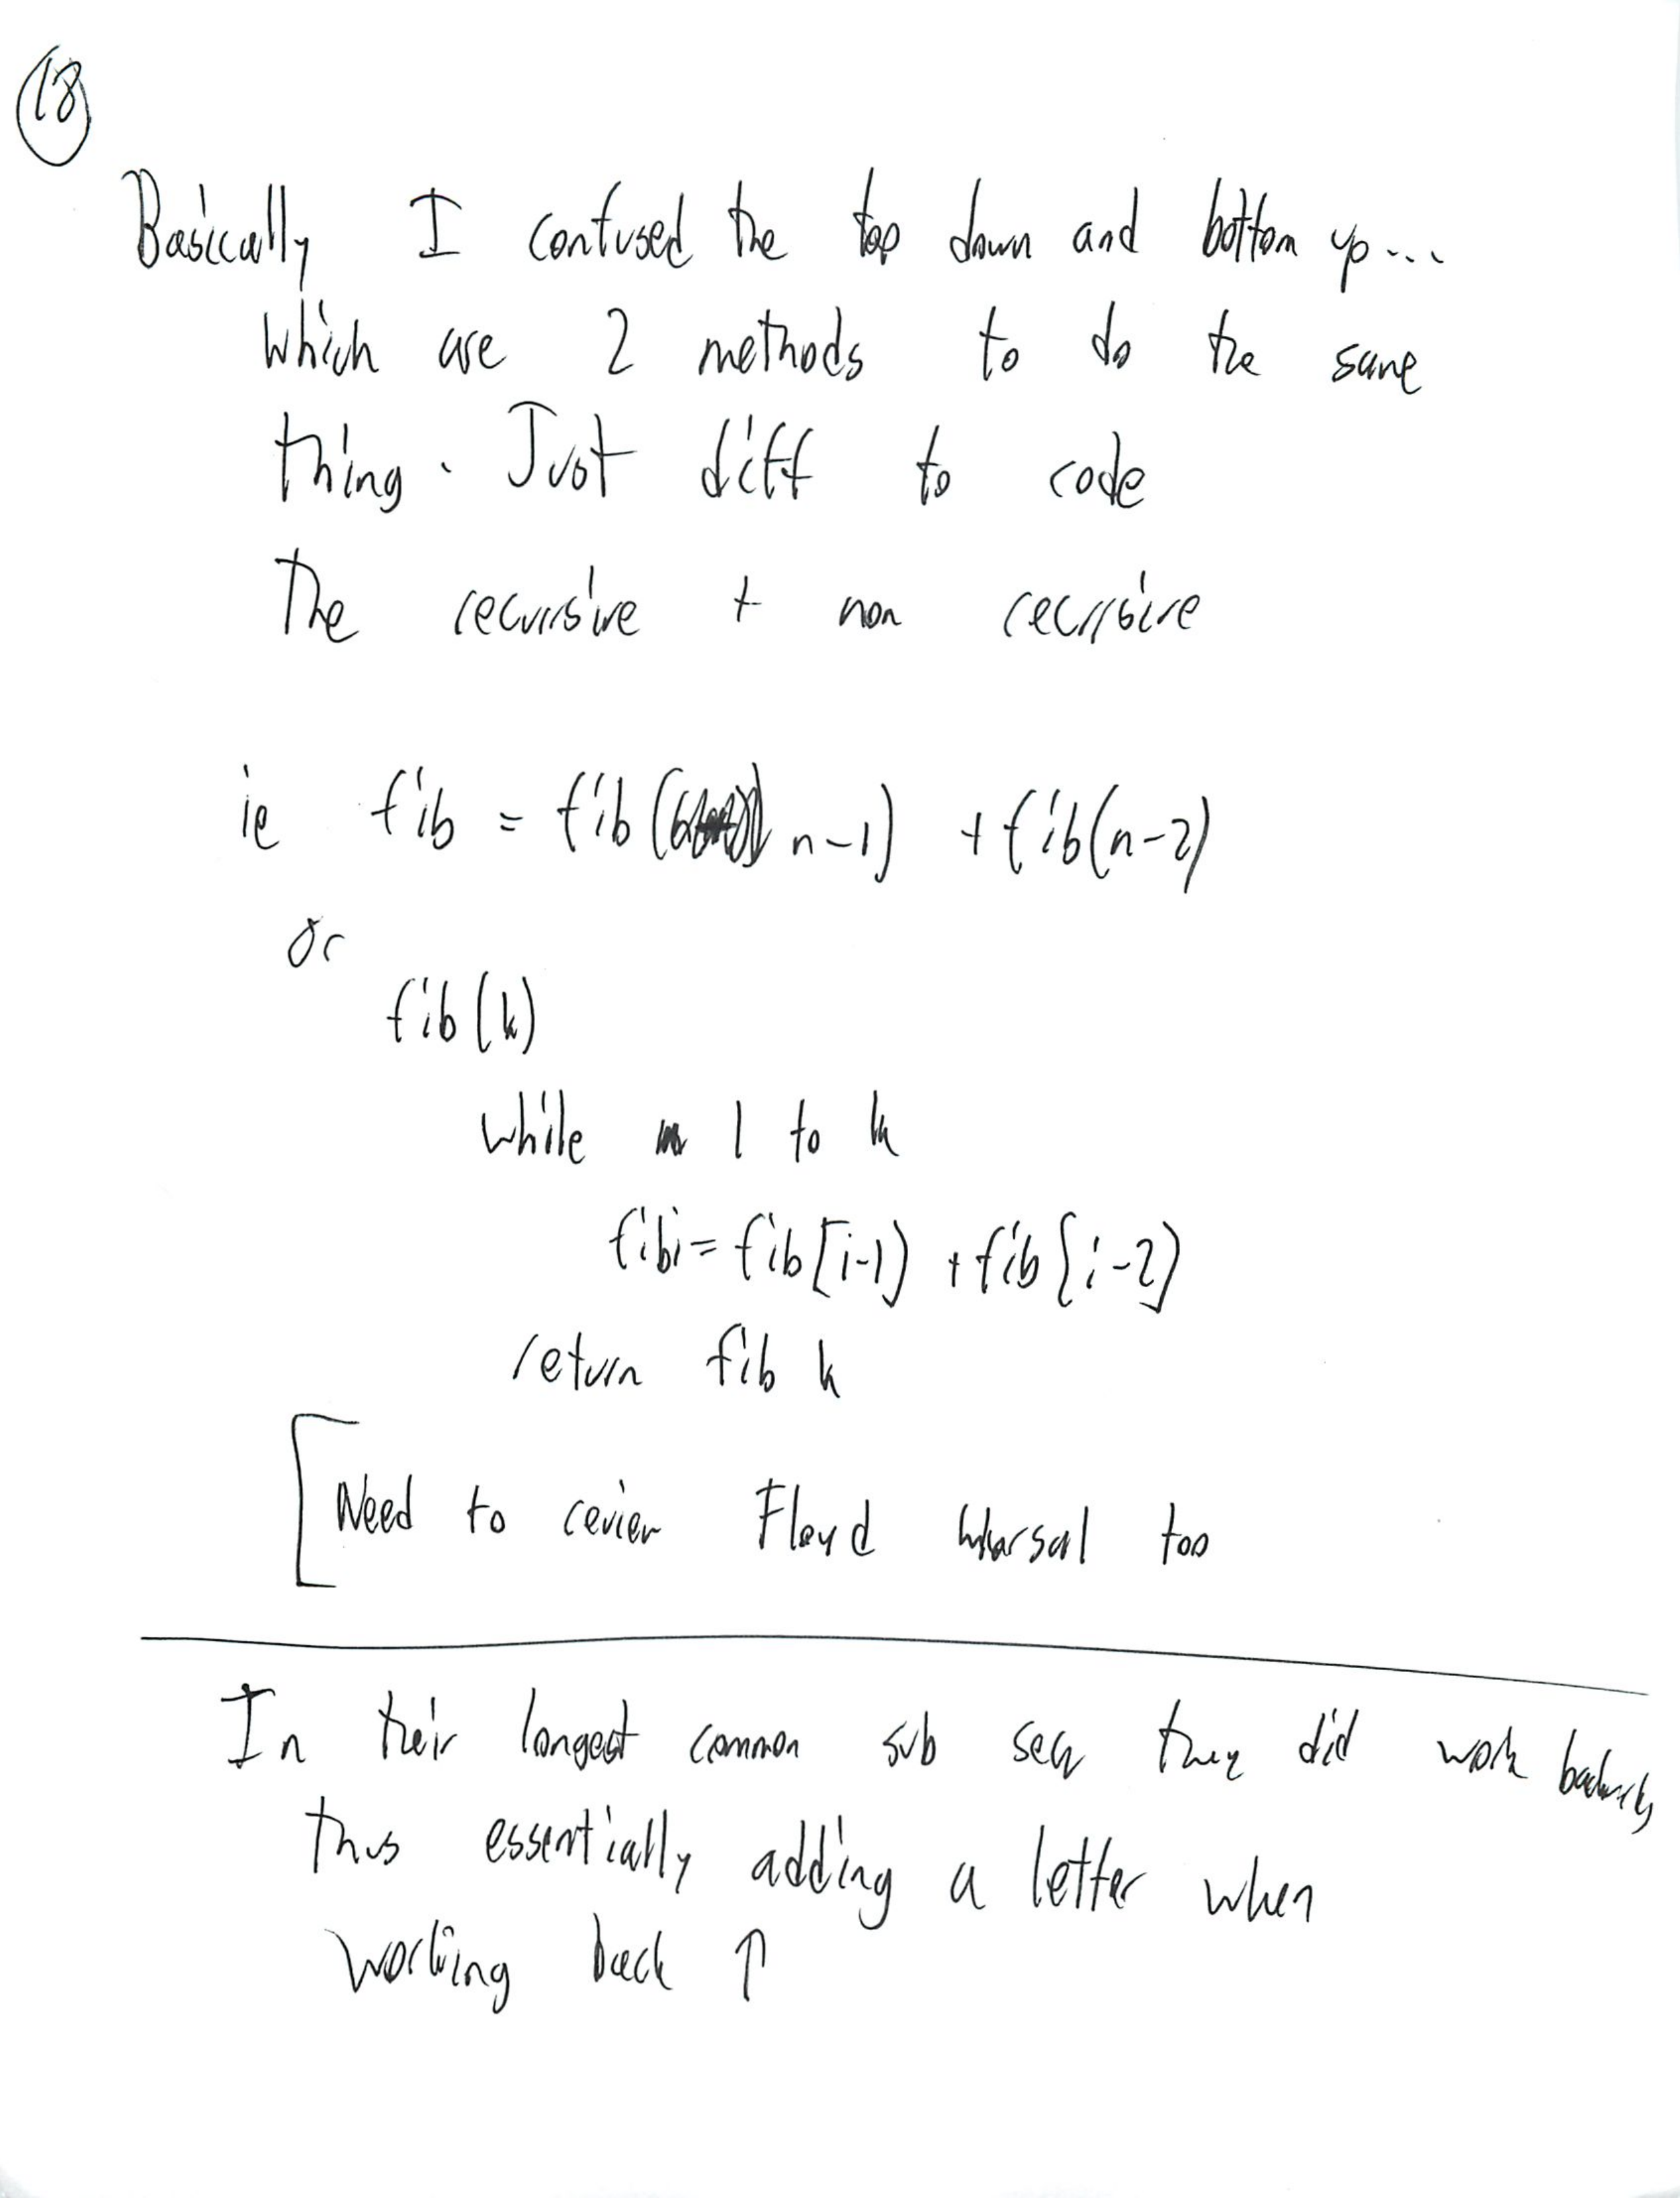 18
Basically I confused the top down and bottom up...
which are 2 methods to do the same
thing. Just diff to code
The recursive + non recursive
ie fib = fib( n-1) + fib(n-2)
or
fib(k)
while 1 to k
fibi = fib[i-1) + fib[i-2]
return fib k
[Need to review Floyd Warsal too
In their longest common sub seq they did work backwards
thus essentially adding a letter when
working back ↑